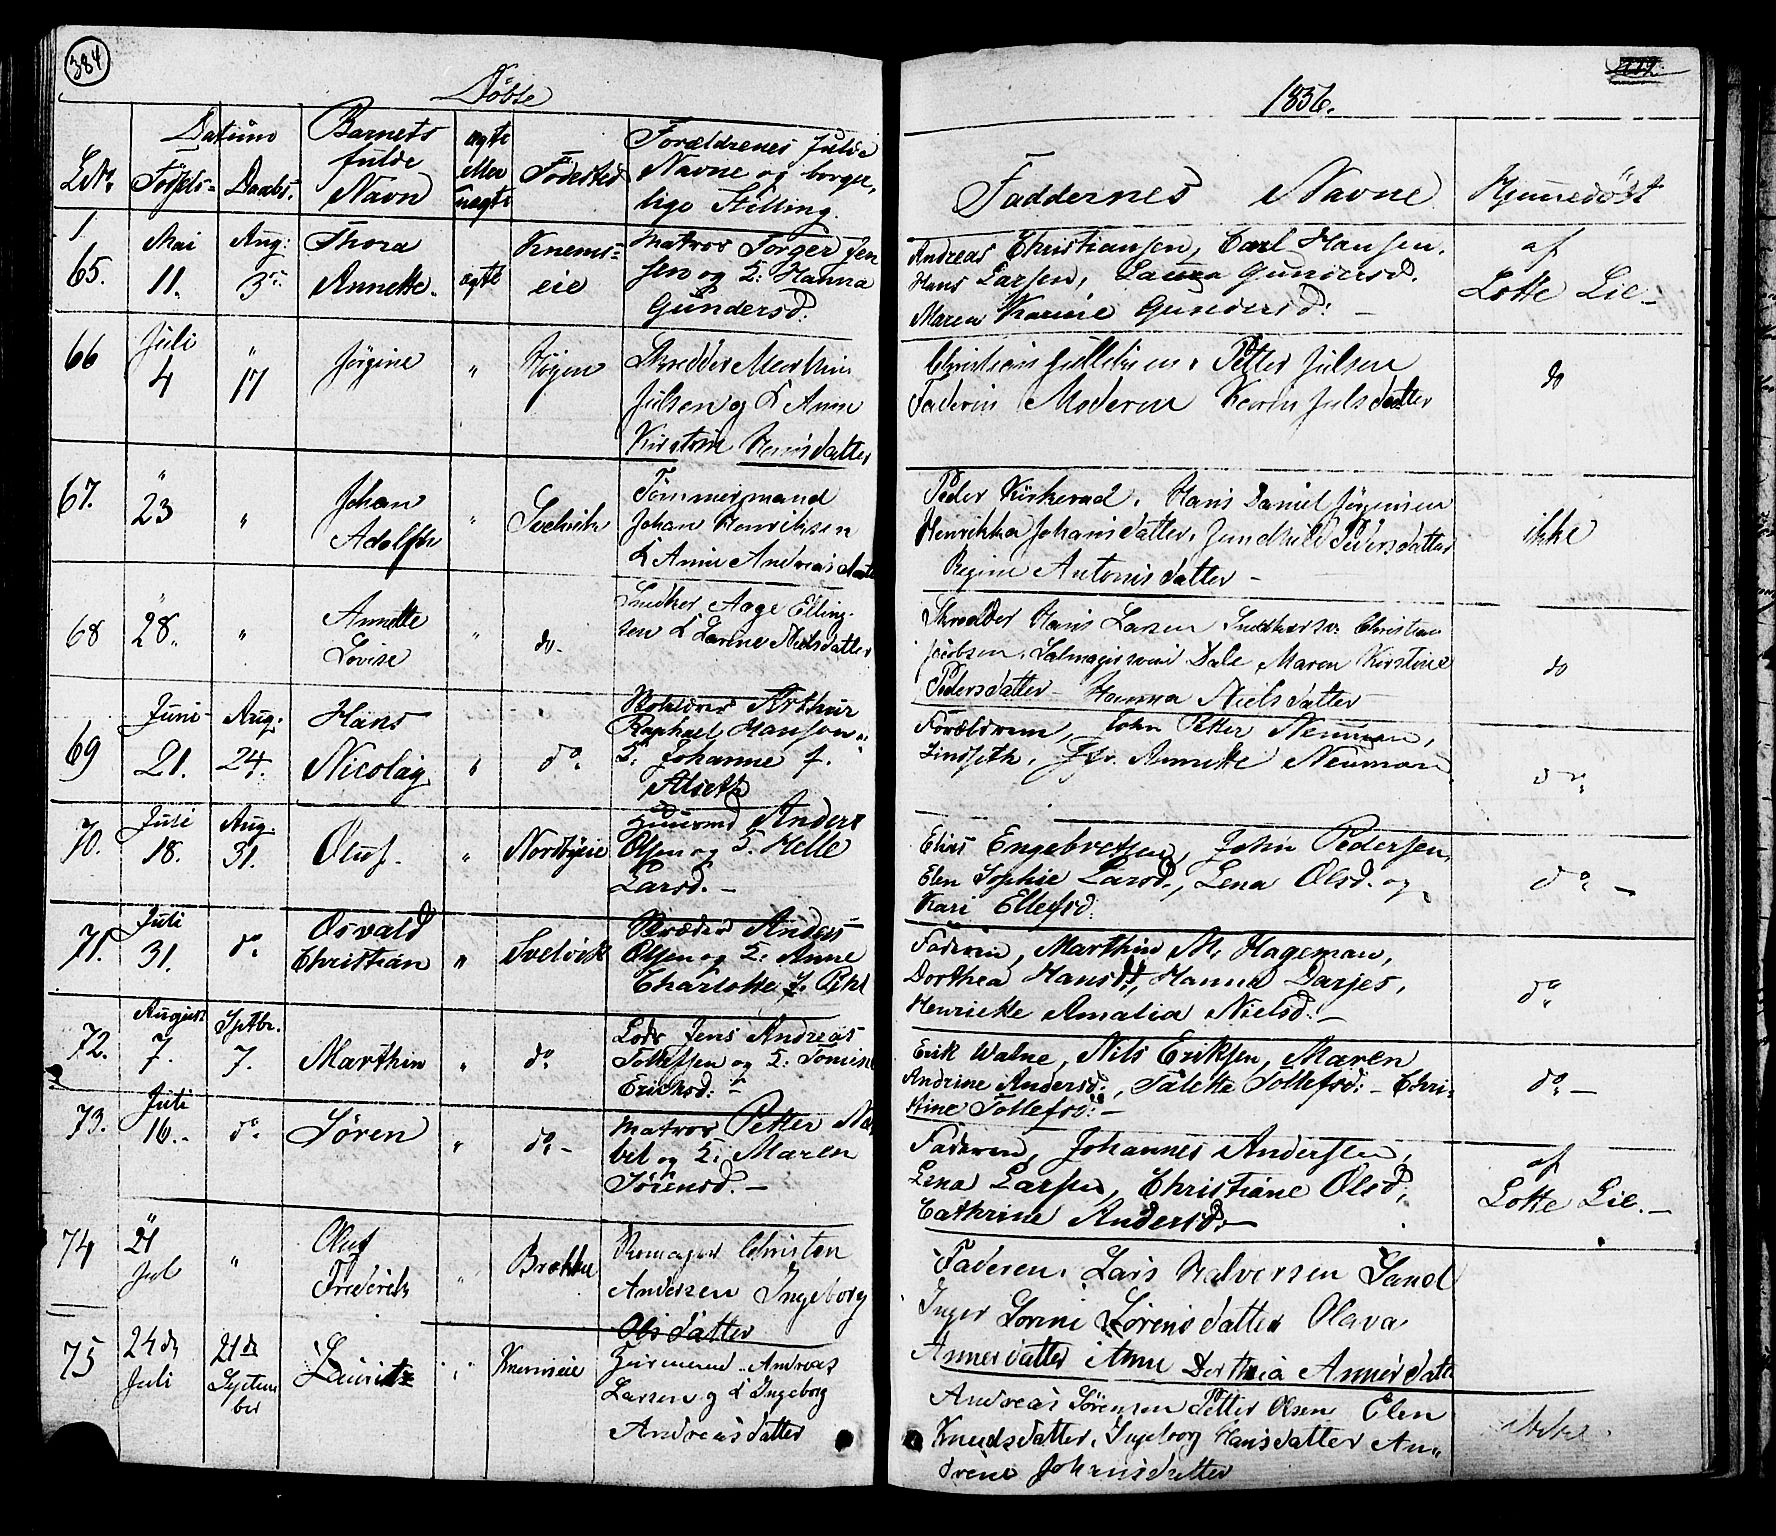 384
Döbte
1856.
L No
Datum
Födsels-
Daabs.
Barnets
fulde
Navn
ægte
eller
uægte
Födested
Forældrenes fulde
Navne og borger,
lige Stilling.
Faddernes Navne
Hjemmedöbt
1.
65.
Mai
11.
Aug:
3
Thora
Annette.
ægte
Knems=
eie
Matros Torger Jen
sen og K: Hanna
Gundersd:
Andreas Christiansen, Carl Hansen.
Hans Larsen, Laura Gundersd.
Maren Karine Gundersd: -
af
Lotte Lie -
66
Juli
4
"
17
Jörgine
"
Högen
Skredder Marthin
Julsen og K Anne
Kirstine Hansdatter
Petter Julsen
Faderen Moderen Karen Julsdatter
do
67.
"
23
"
Johan
Adolph
"
Svelvik
Tömmermand
Johan Henriksen
K Anne Andreasdatt
Peder Kirkerud. Hans Daniel Jörgensen
Henrikka Johansdatter. Gundhild Pedersdatter
Regine Antonisdatter -
ikke
68
"
28.
"
Annette
Lovise
"
do-
Snedker Aage Elling-
sen K Larine Nielsdatter
Skrædder Hans Larsen Snedkersv. Christian
Jacobsen. Salmagersvend Dale Maren Kirstine
Pedersdatter - Hanna Nielsdatter
do
69
Juni-
21.
Aug:
24.
Hans
Nicolay
"
do.
Arthur
Raphael Hansen
K: Johanne f.
Forældrene, John Petter Neuman,
Lindseth, Jfr. Annette Neuman
do.
70.
Juli
18.
Aug.
31.
Oluf.
"
Nordbyeie
Huusmd Anders
Olsen og K. Helle
Larsd. -
Elias Engebretsen, John Pedersen,
Elen Sophie Larsd., Lena Olsd. og
Kari Ellefsd.
do. -
71.
Juli
31.
do.
Osvald
Christian
"
Svelvik
Anders
Olsen og K: Anne
Charlotte f. Pihl
Faderen, Marthin M. Hageman,
Dorthea Hansd:, Hanna Darjes,
Henriette Amalia Nielsd. -
do.
72.
August
7.
Sptbr.
7.
Marthin
"
do.
Lods Jens Andreas
Tollefsen og K: Tomine
Eriksd: -
Erik Walne, Nils Eriksen, Maren
Andrine Andersd:, Talette Tollefsd: - Chri-
stine Tollefsd: -
do. -
73.
Juli
16. -
do.
Sören
"
do. -
Matros Petter No
bel og K: Maren
Sörensd. -
Faderen, Johannes Andersen,
Lena Larsen, Christiane Olsd,
Cathrine Andersd: -
af
Lotte Lie. -
74
21
Jul
"
Oluf
Frederik
"
Brække
Christen
Andersen Ingeborg
Olsdatter
Faderen. Lars Halversen Sand
Inger Sorine Sörensdatter Olava
Annersdatter Anne Dorthea Annersdatt
75
24de
Juli
21de
Septem
ber
Lauritz
"
Knemseie
Huusmand Andreas
Larsen og K Ingeborg
Andreasdatter
Andreas Sörensen Petter Olsen Elen
Knudsdatter. Ingeborg Hansdatter An=
drine Johansdatter
ikke.